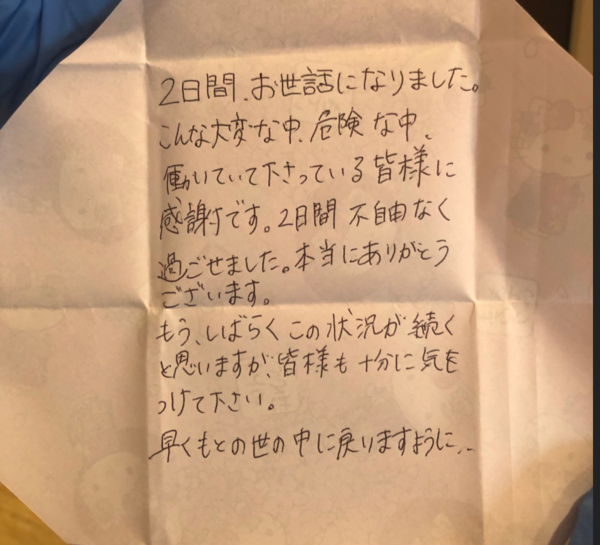 2日間、お世話になりました。
こんな大変な中、危険な中、
働いていて下さっている皆様に
感謝です。2日間不自由なく
過ごせました。本当にありがとう
ございます。
もう、しばらくこの状況が続く
と思いますが、皆様も十分に気を
つけて下さい。
早くもとの世の中に戻りますように…